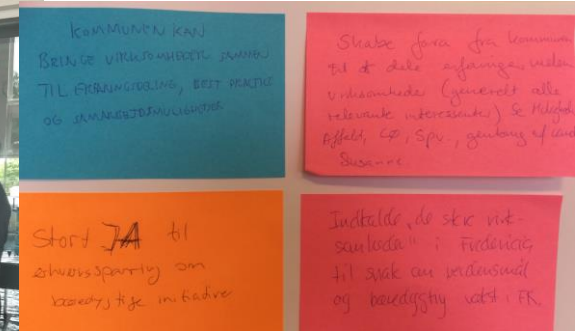 KOMMUNEN KAN
BRINGE VIRKSOMHEDER SAMMEN
TIL ERFARINGSDELING, BEST PRACTICE
OG SAMARBEJDSMULIGHEDER
Skabe fora fra kommunen
til at dele erfaringer mellem
virksomheder (generelt alle
relevante interessenter) Se
Affald, Spv., genbrug
Susanne.
Stort JA til
erhvervssparring om
bæredygtige initiativer
Indkalde "de store virk-
somheder" i Fredericia
til snak om verdensmål
og bæredygtig vækst i FK.